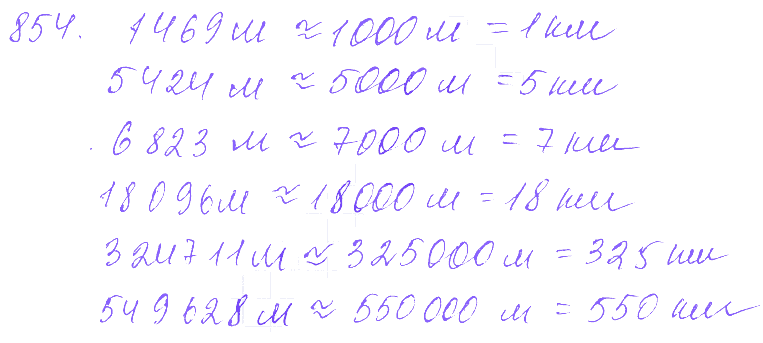 854. 1469 м ≈ 1000 м = 1 км
5424 м ≈ 5000 м = 5 км
6823 м ≈ 7000 м = 7 км
18096 м ≈ 18000 м = 18 км
324711 м ≈ 325000 м = 325 км
549628 м ≈ 550000 м = 550 км